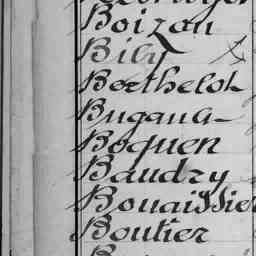 Boizan
Bily
Berthelot
Bugault
Boquen
Baudry
Bouaissier
Boutier